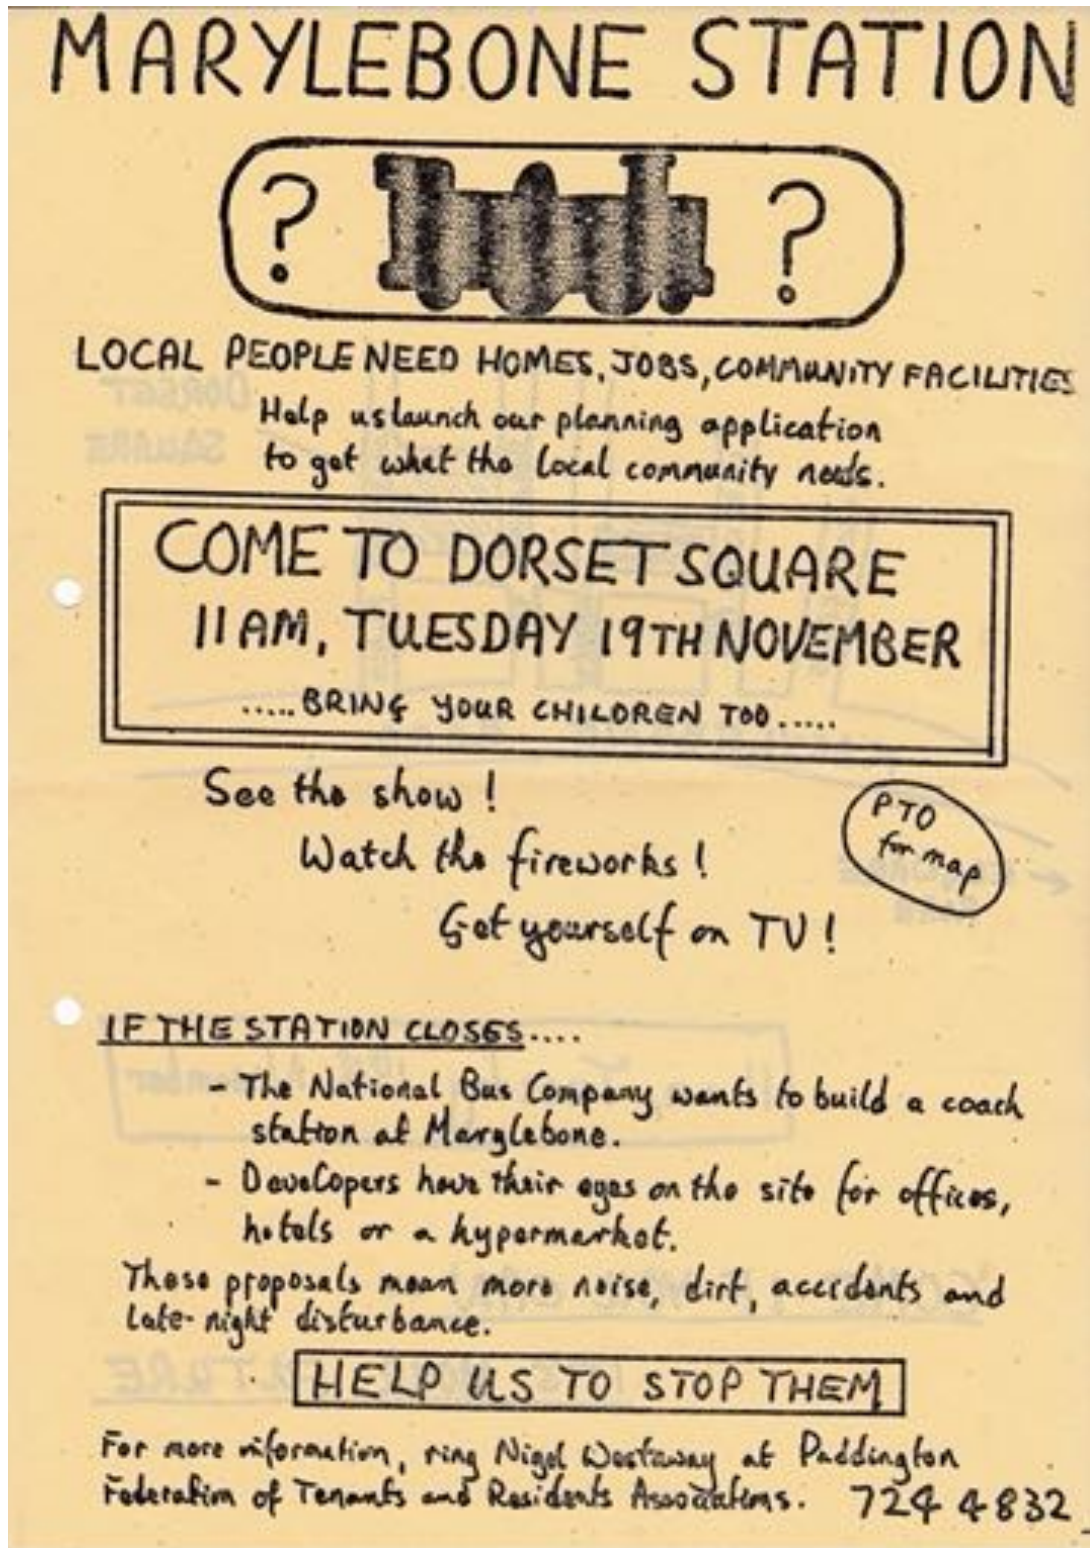 MARYLEBONE STATION
? ?
LOCAL PEOPLE NEED HOMES, JOBS, COMMUNITY FACILITIES
Help us launch our planning application
to get what the local community needs.
COME TO DORSET SQUARE
11 AM, TUESDAY 19TH NOVEMBER
.....BRING YOUR CHILDREN TOO.....
See the show!
Watch the fireworks!
Get yourself on TV!
PTO
for map
IF THE STATION CLOSES....
- The National Bus Company wants to build a coach
station at Marylebone.
- Developers have their eyes on the site for offices,
hotels or a hypermarket.
These proposals mean more noise, dirt, accidents and
late-night disturbance.
HELP US TO STOP THEM
For more information, ring Nigel Westaway at Paddington
Federation of Tenants and Residents Associations. 724 4832